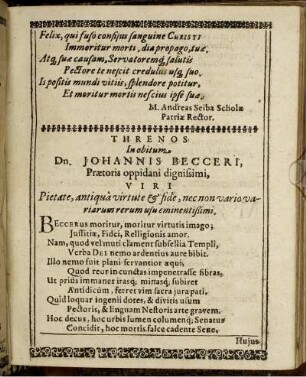 Felix, qui fuso confisus sanguine CHRISTI
Immoritur morti, dia propago, tuæ,
Atq; suæ causam, Servatoremq; salutis
Pectore te nescit credulus usq; suo.
Is positis mundi vitiis, splendore potitur,
Et moritur mortis nescius ipse suæ.
M. Andreas Seiba Scholæ
Patriæ Rector.
THRENOS
In obitum
Dn. JOHANNIS BECCERI,
Prætoris oppidani dignissimi,
VIRI
Pietate, antiquà virtute & fide, nec non vario va-
riarum rerum usu eminentissimi.
BECCERUS moritur, moritur virtutis imago;
Justitiæ, Fidei, Relligionis amor.
Nam, quod vel muti clament subsellia Templi,
Verba DEI nemo ardentius aure bibit.
Illo nemo fuit plani servantior æqui,
Quod reor in cunctas impenetrasse fibras,
Ut prius immaner irasq; minasq; subiret
Antidicûm, ferret vim sacra jura pati.
Quid loquar ingenii dotes, & divitis usum
Pectoris, & linguam Nestoris arte gravem.
Hoc decus, hoc urbis lumen columenq; Senatus
Concidit, hoc mortis falce cadente Sene,
Hujus